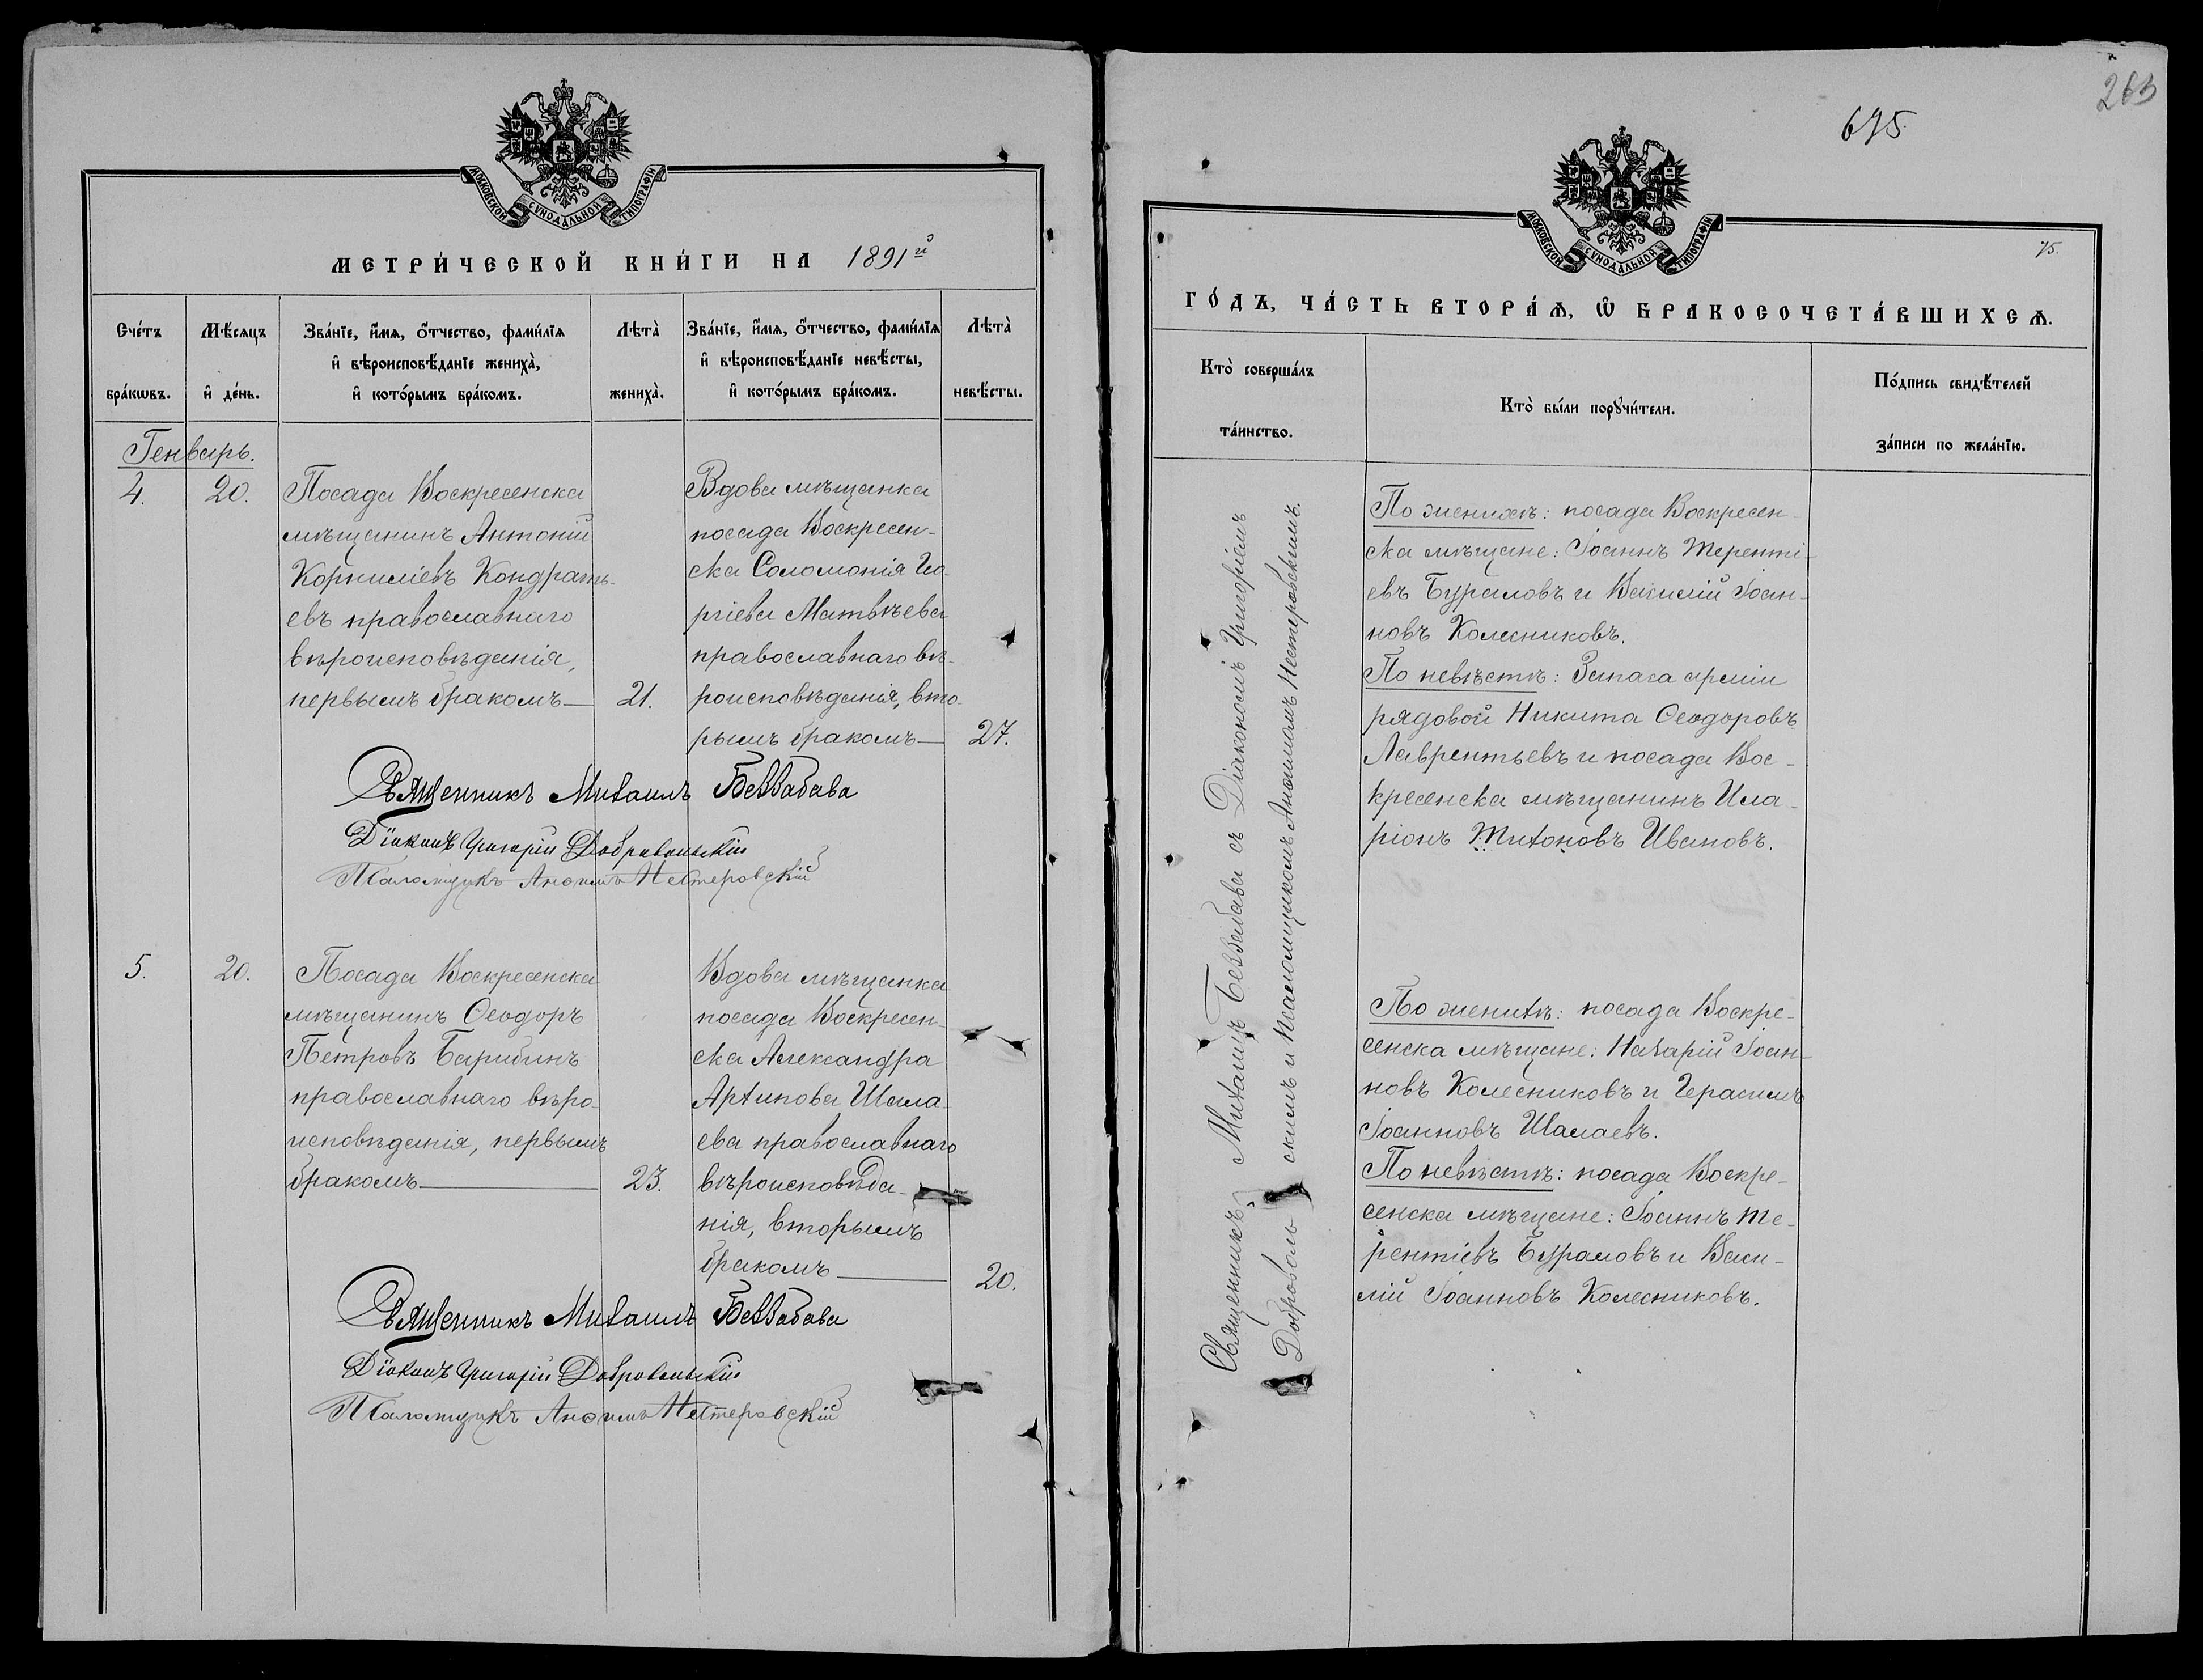 МОСКОВСКОЙ СѴНОДАЛЬНОЙ ТИПОГРАФІИ
МЕТРИ́ЧЕСКОЙ КНИ́ГИ НА 1891й
Сче́тъ
бра́кѡвъ.
Мѣ́сяцъ
и҆ де́нь.
Зва́нїе, и҆́мя, ѻ҆́тчество, фами́лїя
и҆ вѣроисповѣ́данїе жениха̀,
и҆ кото́рымъ бра́комъ.
Лѣ́та̀
жениха̀.
Зва́нїе, и҆́мя, ѻ҆́тчество, фами́лїя
и҆ вѣроисповѣ́данїе невѣ́сты,
и҆ кото́рымъ бра́комъ.
Лѣ́та̀
невѣ́сты.
Генварь.
4.
20.
Посада Воскресенска
мѣщанинъ Антоній
Корниліевъ Кондрать-
евъ православнаго
вѣроисповѣданія,
первымъ бракомъ—
21.
Вдова мѣщанка
посада Воскресен-
ска Соломонія Гео-
ргіева Матвѣева
православнаго вѣ-
роисповѣданія, вто-
рымъ бракомъ—
27.
Священникъ Михаилъ Беззабава
Діаконъ Григорій Добровольскій
Псаломщикъ Анѳимъ Нестеровскій
5.
20.
Посада Воскресенска
мѣщанинъ Ѳеодоръ
Петровъ Барибинъ
православнаго вѣро-
исповѣданія, первымъ
бракомъ—
23.
Вдова мѣщанка
посада Воскресен-
ска Александра
Архипова Шала-
ева православнаго
вѣроисповѣда-
нія, вторымъ
бракомъ—
20.
Священникъ Михаилъ Беззабава
Діаконъ Григорій Добровольскій
Псаломщикъ Анѳимъ Нестеровскій
263
675.
МОСКОВСКОЙ СѴНОДАЛЬНОЙ ТИПОГРАФІИ
75.
ГО́ДЪ, ЧА́СТЬ ВТОРА́Ѧ, Ѽ БРАКОСОЧЕТА́ВШИХСѦ.
Кто̀ соверша́лъ
та́инство.
Кто̀ бы́ли порꙋчи́тели.
По́дпись свидѣ́телей
за́писи по жела́нїю.
Священникъ Михаилъ Беззабава съ Діакономъ Григоріемъ
Доброволь скимъ и Псаломщикомъ Анѳимомъ Нестеровскимъ.
По женихѣ: посада Воскресен-
ска мѣщане: Іоаннъ Теренті-
евъ Бураловъ и Василій Іоан-
новъ Колесниковъ.
По невѣстѣ: Запаса арміи
рядовой Никита Ѳеодоровъ
Лаврентьевъ и посада Вос-
кресенска мѣщанинъ Ила-
ріонъ Тихоновъ Ивановъ.
По женихѣ: посада Воскре-
сенска мѣщане: Назарій Іоан-
новъ Колесниковъ и Герасимъ
Іоанновъ Шалаевъ.
По невѣстѣ: посада Воскре-
сенска мѣщане: Іоаннъ Те-
рентіевъ Бураловъ и Васи-
лій Іоанновъ Колесниковъ.